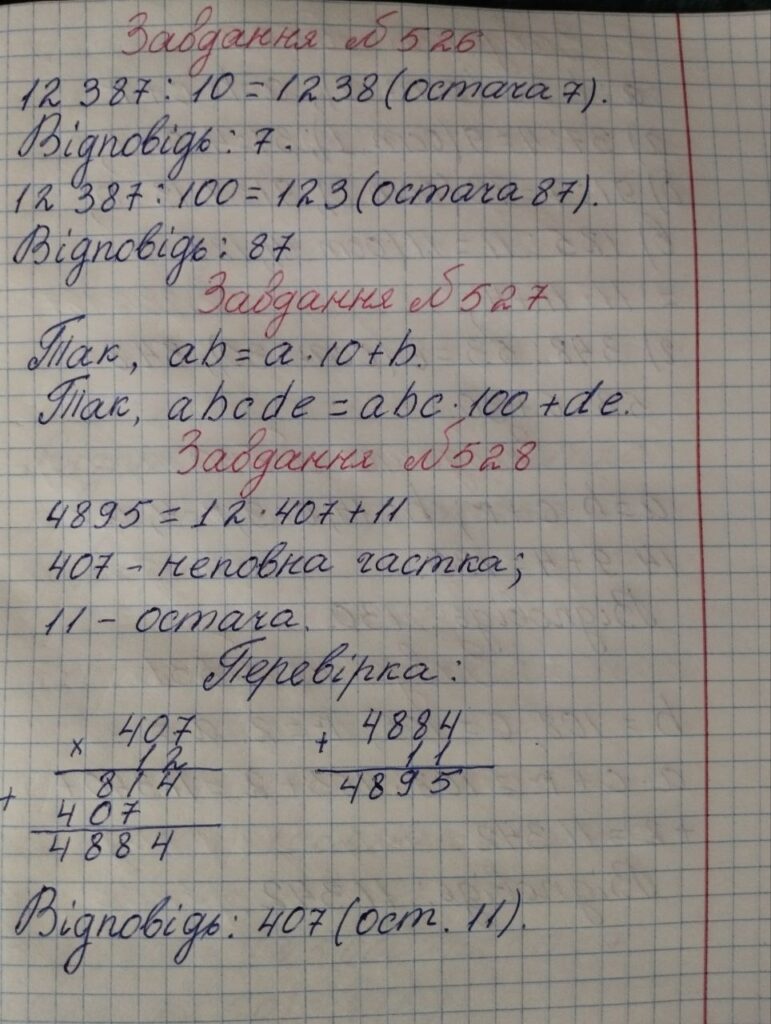 Завдання №526
12 387 : 10 = 1238 (остача 7).
Відповідь: 7.
12 387 : 100 = 123 (остача 87).
Відповідь: 87
Завдання №527
Так, ab = a · 10 + b.
Так, abcde = abc · 100 + de.
Завдання №528
4895 = 12 · 407 + 11
407 – неповна частка;
11 – остача.
Перевірка:
× 407
12
+ 814
407
4884
+ 4884
11
4895
Відповідь: 407 (ост. 11).